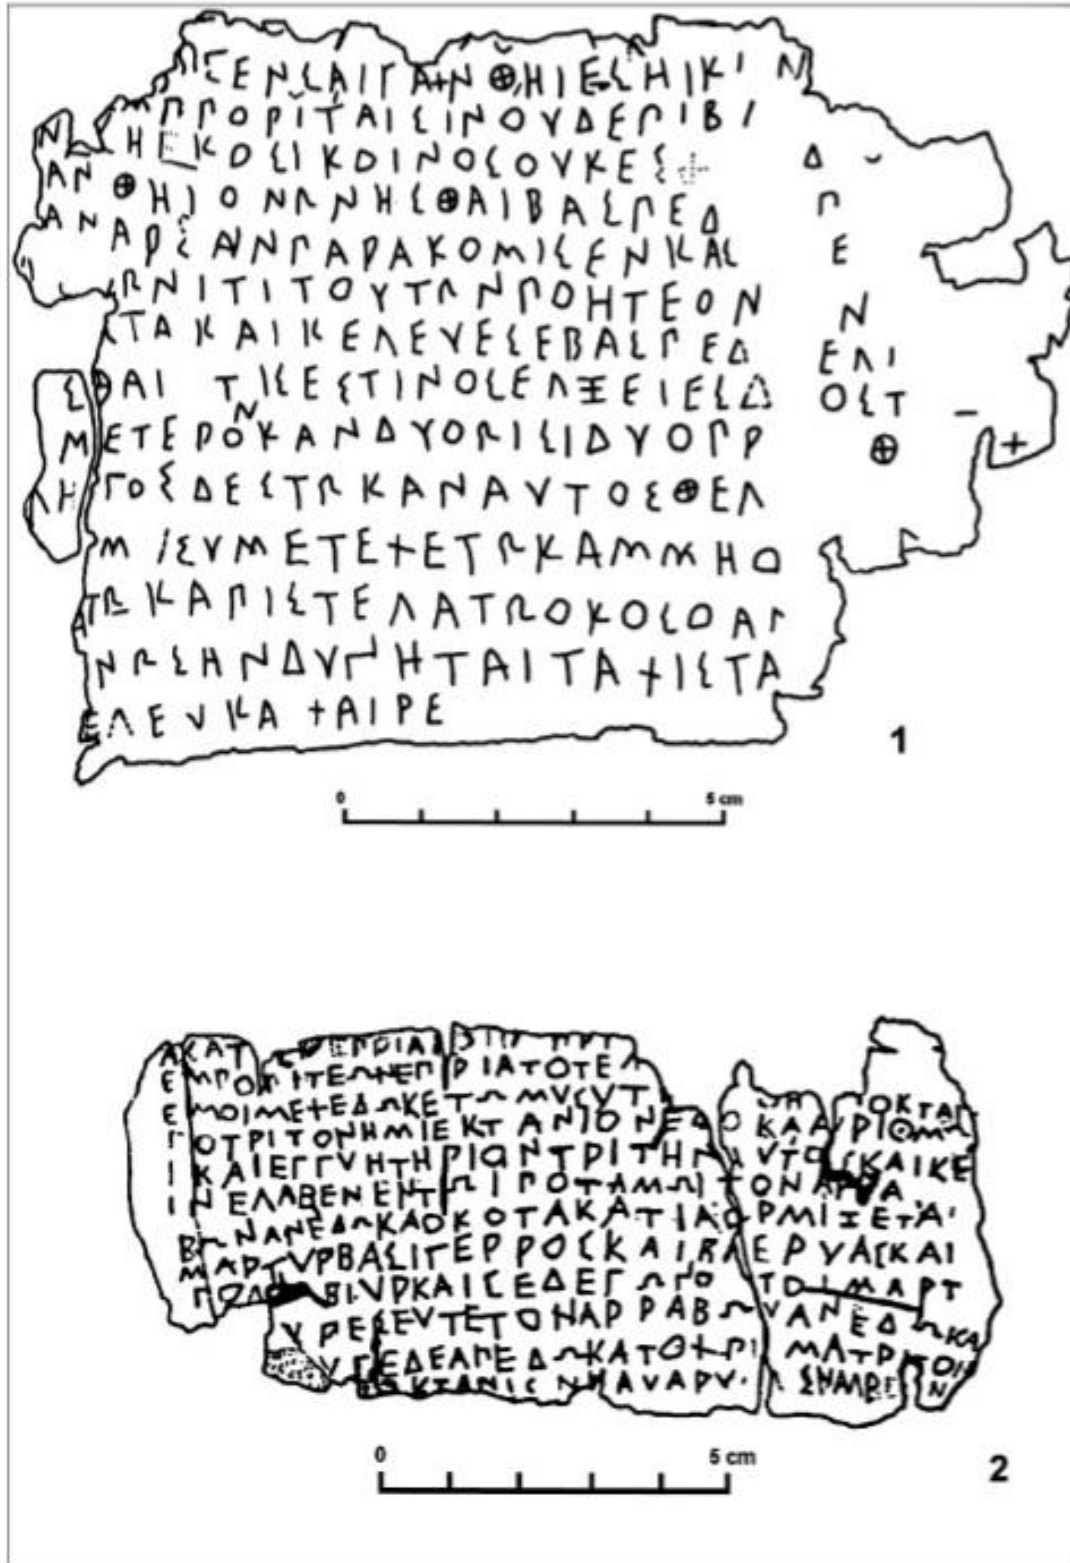 ΩΣΕΝΣΑΙΓΑΝΘΗΙΕΣΗΙΚ Ν
ΜΠΟΡΙΤΑΙΣΙΝΟΥΔΕΠΙΒ
Ν ΗΕΚΟΣΙΚΟΙΝΟΣΟΥΚΕΣ Δ
ΑΝΘΗΙΟΝΩΝΗΣΘΑΙΒΑΣΠΕΔ Π
ΑΝΑΡΣΑΝΠΑΡΑΚΟΜΙΣΕΝΚΑΣ Ε
ΩΝΙΤΙΤΟΥΤΩΝΠΟΗΤΕΟΝ Ν
ΤΑΚΑΙΚΕΛΕΥΕΣΕΒΑΣΠΕΔ ΕΛΙ
ΣΘΑΙ ΤΙΣΕΣΤΙΝΟΣΕΛΞΕΙΕΣΔ ΟΣΤ
ΜΕΤΕΡΟΝΚΑΝΔΥΟΩΙΣΙΔΥΟΠΡ Θ Χ
ΛΗΓΟΣΔΕΣΤΩΚΑΝΑΥΤΟΣΘΕΛ
ΜΙΣΥΜΕΤΕΧΕΤΩΚΑΜΜΗΟ
ΤΩΚΑΠΙΣΤΕΛΑΤΩΟΚΟΣΟΑΓ
ΝΩΣΗΝΔΥΝΗΤΑΙΤΑΧΙΣΤΑ
ΕΛΕΥΚΑ ΧΑΙΡΕ
1
0 5 cm
ΑΚΑΤ ΕΠΡΙΑ
ΕΜΠΟΡΙΤΕΩΝΕΠΡΙΑΤΟΤΕ
ΕΜΟΙΜΕΤΕΔΩΚΕΤΩΜΥΣΥΤ ΟΚΤΑ
ΓΟΤΡΙΤΟΝΗΜΙΕΚΤΑΝΙΟΝΕΔΟΚΑΑΡΙΘΜΩ
ΙΚΑΙΕΓΓΥΗΤΗΡΙΟΝΤΡΙΤΗΝΑΥΤΟΣΚΑΙΚΕ
ΙΝΕΛΑΒΕΝΕΝΤΩΙΠΟΤΑΜΩΙΤΟΝΑΡΡΑ
ΒΩΝΑΝΕΔΩΚΑΟΚΟΤΑΚΑΤΙΑΟΡΜΙΞΕΤΑΙ
ΜΑΡΤΥΡΒΑΣΙΓΕΡΡΟΣΚΑΙΒΛΕΡΥΑΣΚΑΙ
ΓΟΛΟΒΙΥΡΚΑΙΣΕΔΕΓΩΓΟ ΤΟΙΜΑΡΤ
ΥΡΕΣΕΥΤΕΤΟΝΑΡΡΑΒΩΝΑΝΕΔΩΚΑ
ΥΓΕΔΕΑΠΕΔΩΚΑΤΟΧΡΙΜΑΤΡΙΤΟΝ
ΕΚΤΑΝΙΣΝΗΑΥΑΡΥ ΣΗΛΑΡΒΕ Ν
0 5 cm
2